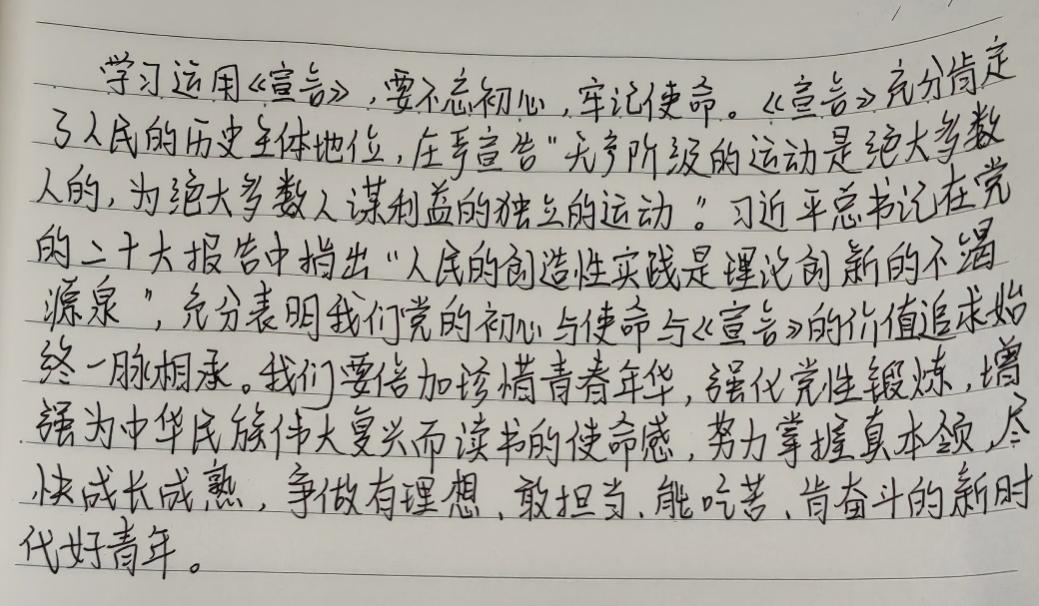 学习运用《宣言》，要不忘初心，牢记使命。《宣言》充分肯定
了人民的历史主体地位，庄严宣告“无产阶级的运动是绝大多数
人的，为绝大多数人谋利益的独立的运动”。习近平总书记在党
的二十大报告中指出“人民的创造性实践是理论创新的不竭
源泉”，充分表明我们党的初心与使命与《宣言》的价值追求始
终一脉相承。我们要倍加珍惜青春年华，强化党性锻炼，增
强为中华民族伟大复兴而读书的使命感，努力掌握真本领，尽
快成长成熟，争做有理想、敢担当、能吃苦、肯奋斗的新时
代好青年。